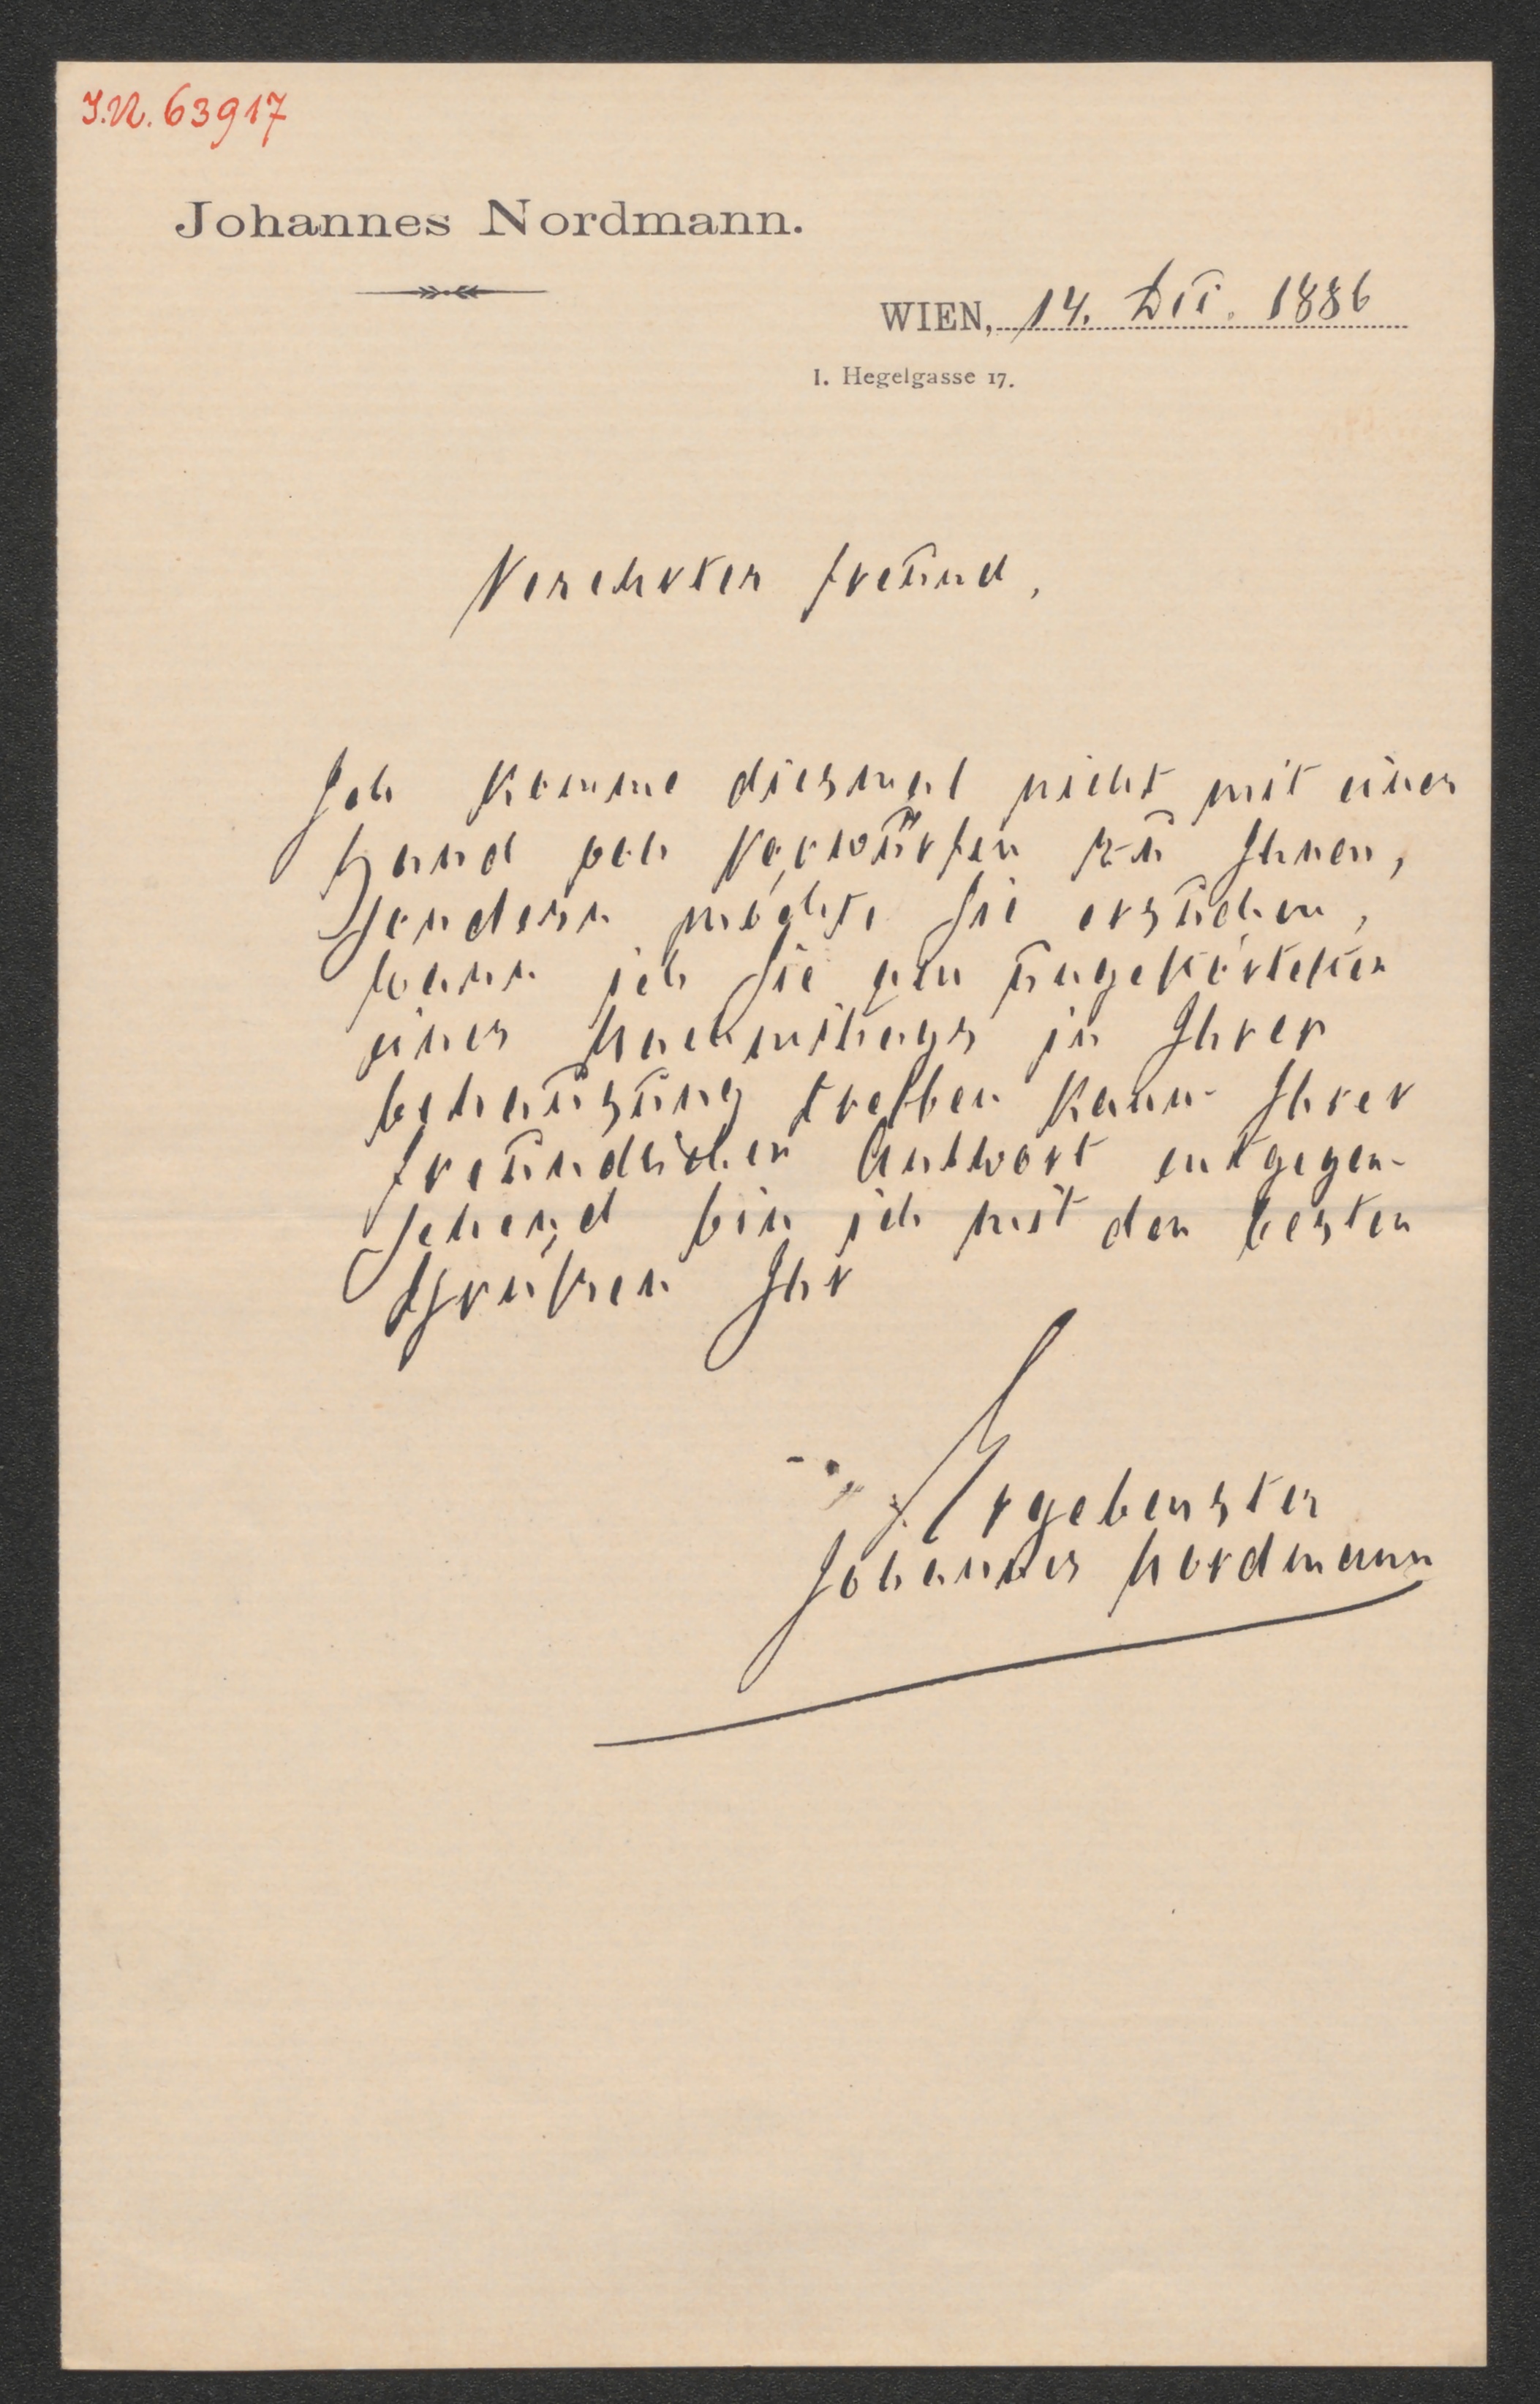 I.N. 63917
Johannes Nordmann.
WIEN, 14. Dec. 1886
I. Hegelgasse 17.
Verehrter Freund,
Ich komme diesmal nicht mit einer
Hand voll Vorwürfen zu Ihnen,
sondern möchte Sie ersuchen,
wann ich Sie am ungestörtesten
eines Nachmittags in Ihrer
Behausung treffen kann. Ihrer
freundlichen Antwort entgegen-
sehend bin ich mit den besten
Grüßen Ihr
Ergebenster
Johannes Nordmann